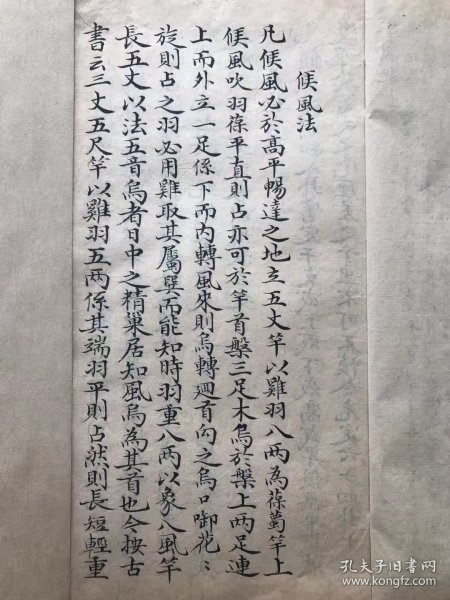 候風法
凡候風必於高平暢達之地立五丈竿以雞羽八兩為葆萬竿上
候風吹羽葆平直則占亦可於竿首盤三足木烏於盤上兩足連
上而外立一足係下而內轉風來則烏轉廻首向之烏口啣花〻
旋則占之羽必用雞取其屬巽而能知時羽重八兩以象八風竿
長五丈以法五音烏者日中之精巢居知風烏為其首也今按古
書云三丈五尺竿以雞羽五兩係其端羽平則占然則長短輕重
孔夫子旧书网
www.kongfz.com